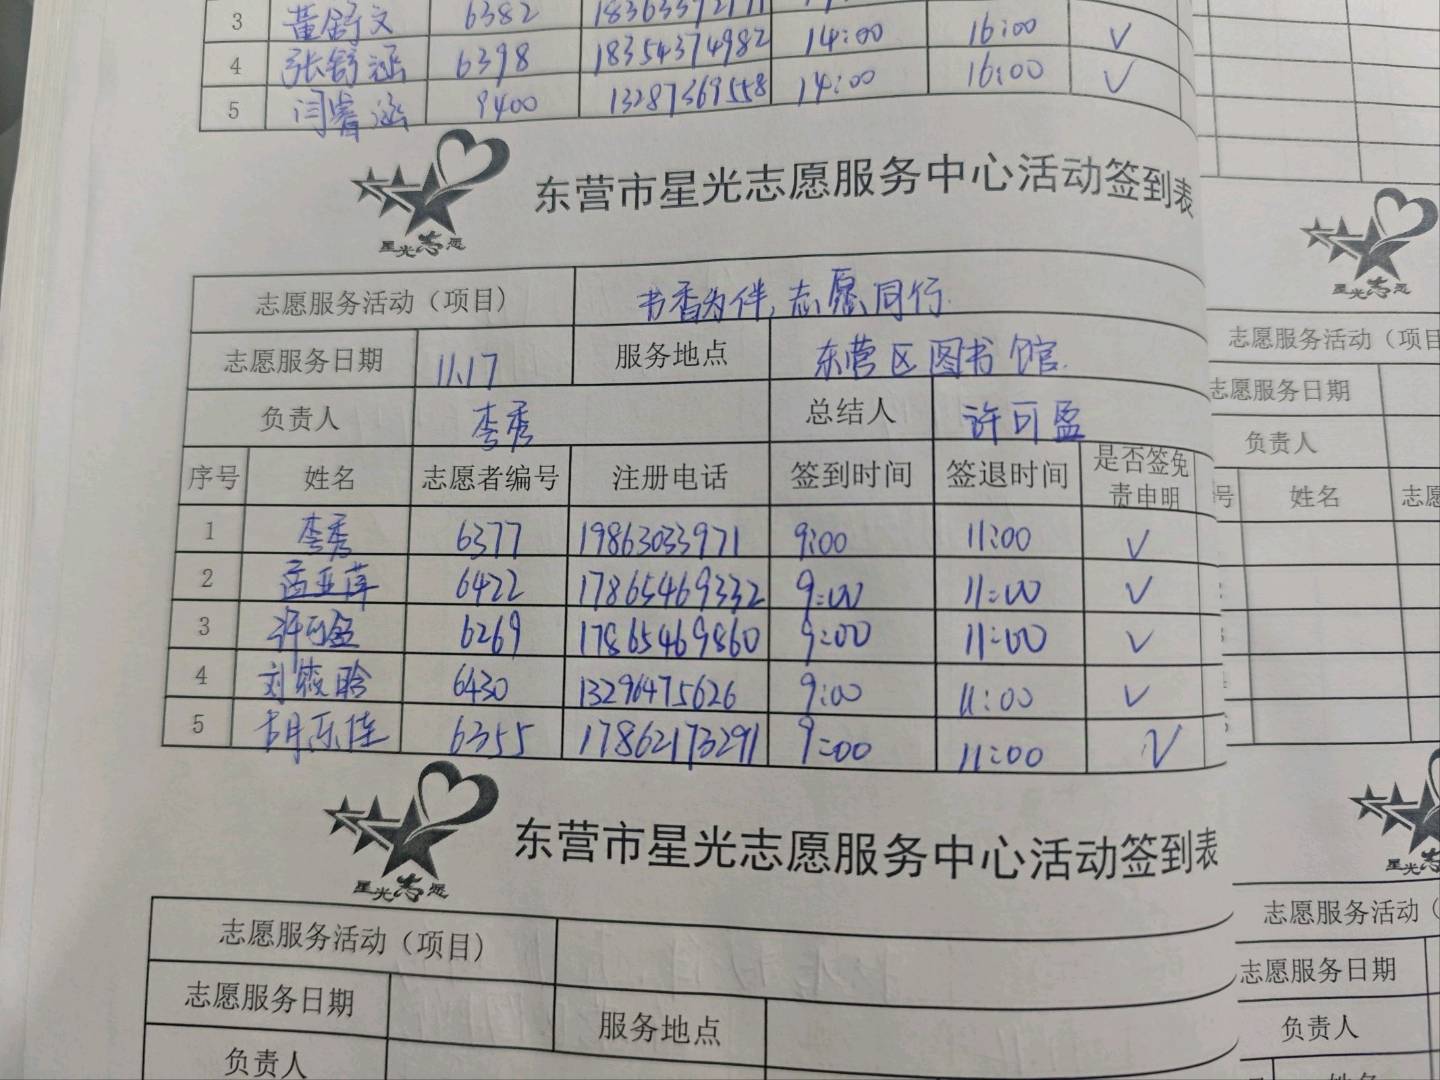 3 黄舒文 6382
4 张舒涵 6398 18354374982 14:00 16:00 ✓
5 闫睿涵 9400 13287369558 14:00 16:00 ✓
星光志愿
东营市星光志愿服务中心活动签到表
志愿服务活动（项目） 书香为伴,志愿同行.
志愿服务日期 11.17 服务地点 东营区图书馆.
负责人 李秀 总结人 许可盈
序号 姓名 志愿者编号 注册电话 签到时间 签退时间 是否签免责申明
1 李秀 6377 19863033971 9:00 11:00 ✓
2 孟亚萍 6422 17865469332 9:00 11:00 ✓
3 许可盈 6269 17865469860 9:00 11:00 ✓
4 刘筱晗 6430 13296475626 9:00 11:00 ✓
5 胡乐佳 6355 17862173291 9:00 11:00 ✓
星光志愿
东营市星光志愿服务中心活动签到表
志愿服务活动（项目）
志愿服务日期 服务地点
负责人
星光志愿
志愿服务活动（项目
志愿服务日期
负责人
号 姓名 志愿
星光志
志愿服务活动（
志愿服务日期
负责人